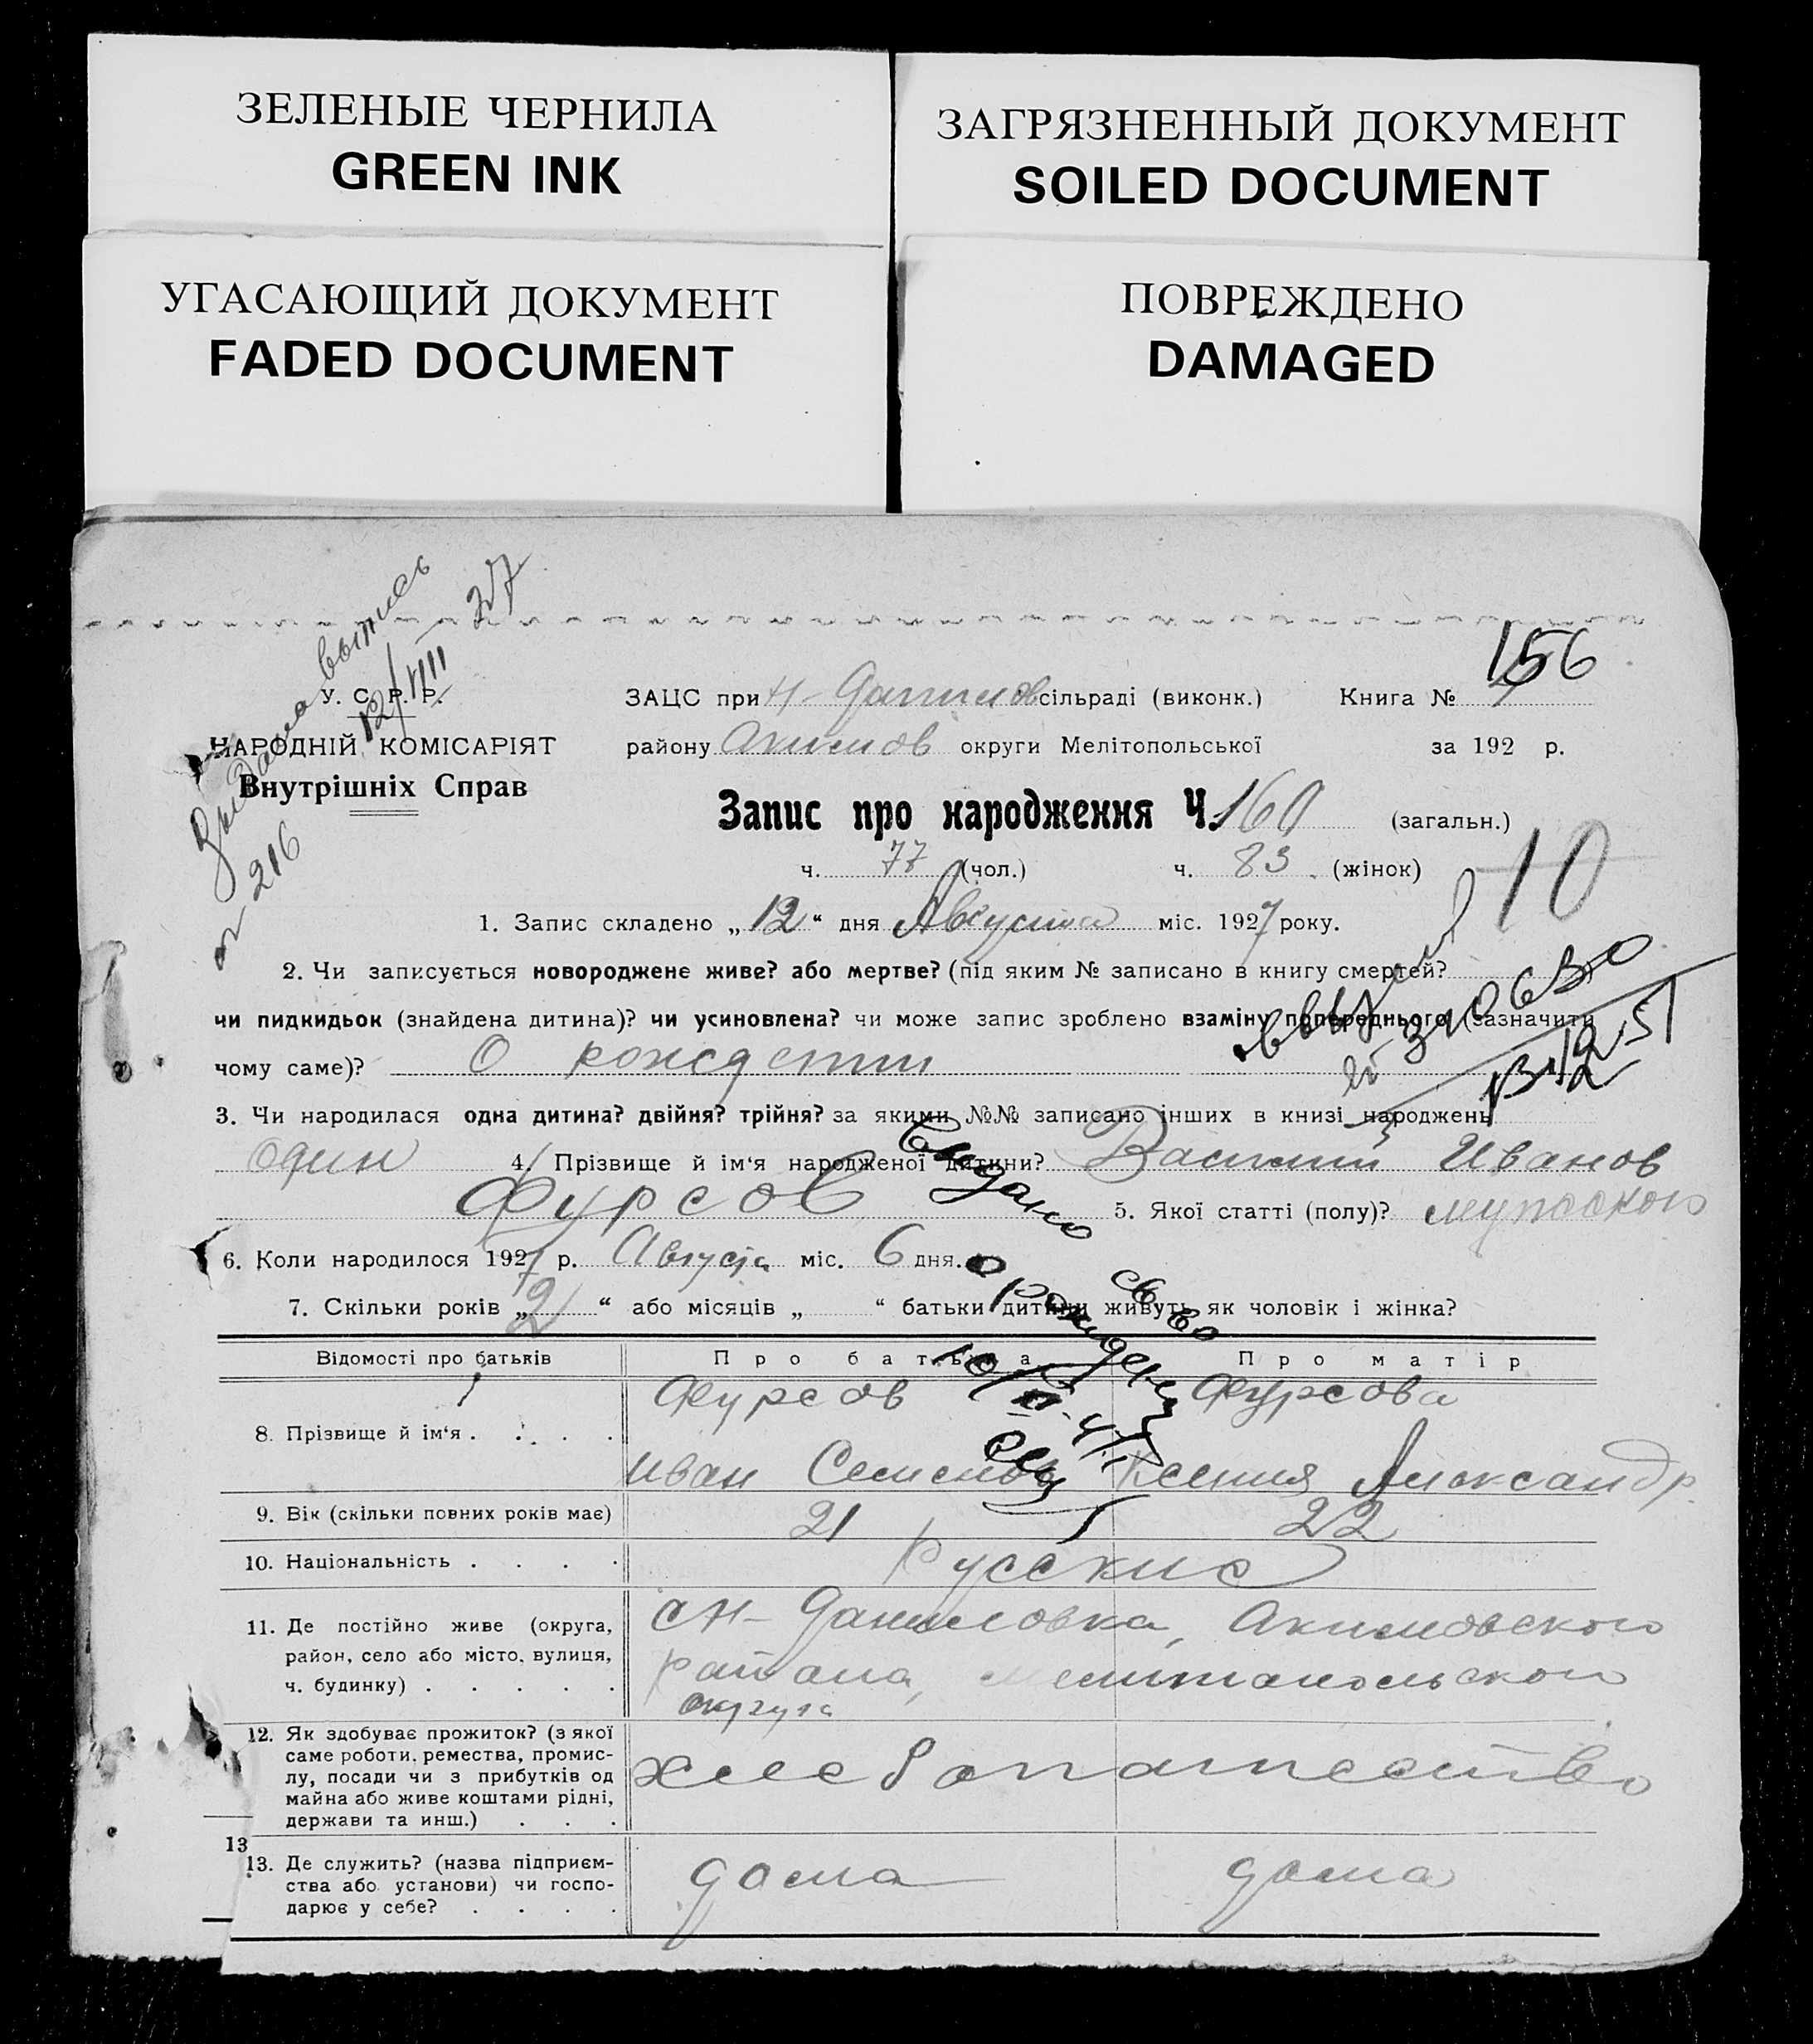 ЗЕЛЕНЫЕ ЧЕРНИЛА
GREEN INK
ЗАГРЯЗНЕННЫЙ ДОКУМЕНТ
SOILED DOCUMENT
УГАСАЮЩИЙ ДОКУМЕНТ
FADED DOCUMENT
ПОВРЕЖДЕНО
DAMAGED
Выдана выпись
12/VIII 27
216
156
У. С. Р. Р.
НАРОДНІЙ КОМІСАРІЯТ
Внутрішніх Справ
ЗАЦС при Н-Данилов сільраді (виконк.) Книга №
району Акимов округи Мелітопольської за 192 р.
Запис про народження Ч. 160 (загальн.)
ч. 77 (чол.) ч. 83 (жінок)
10
1. Запис складено „12“ дня Августа міс. 1927 року.
2. Чи записується новороджене живе? або мертве? (під яким № записано в книгу смертей?
чи пидкидьок (знайдена дитина)? чи усиновлена? чи може запис зроблено взаміну попереднього (зазначити
чому саме)? О рождении
3. Чи народилася одна дитина? двійня? трійня? за якими №№ записано інших в книзі народжень
один 4. Прізвище й ім‘я народженої дитини? Василий Иванов
Фурсов 5. Якої статті (полу)? мужского
6. Коли народилося 1927 р. Августа міс. 6 дня.
7. Скільки років „2“ або місяців „ “ батьки дитини живуть як чоловік і жінка?
Выдано св во
о рождении
Відомості про батьків Про батька Про матір
8. Прізвище й ім‘я . . . . . Фурсов Фурсова
Иван Семенов Ксения Александр.
9. Вік (скільки повних років має) 21 22
10. Національність . . . . Русские
11. Де постійно живе (округа, район, село або місто, вулиця, ч. будинку) . . . . .
с Н-Даниловка, Акимовского
района, Мелитопольского
округа
12. Як здобуває прожиток? (з якої
саме роботи, ремества, промис-
лу, посади чи з прибутків од
майна або живе коштами рідні,
держави та инш.) . . .
хлебопашество
13
13. Де служить? (назва підприєм-
ства або установи) чи госпо-
дарює у себе? . . . .
дома дома